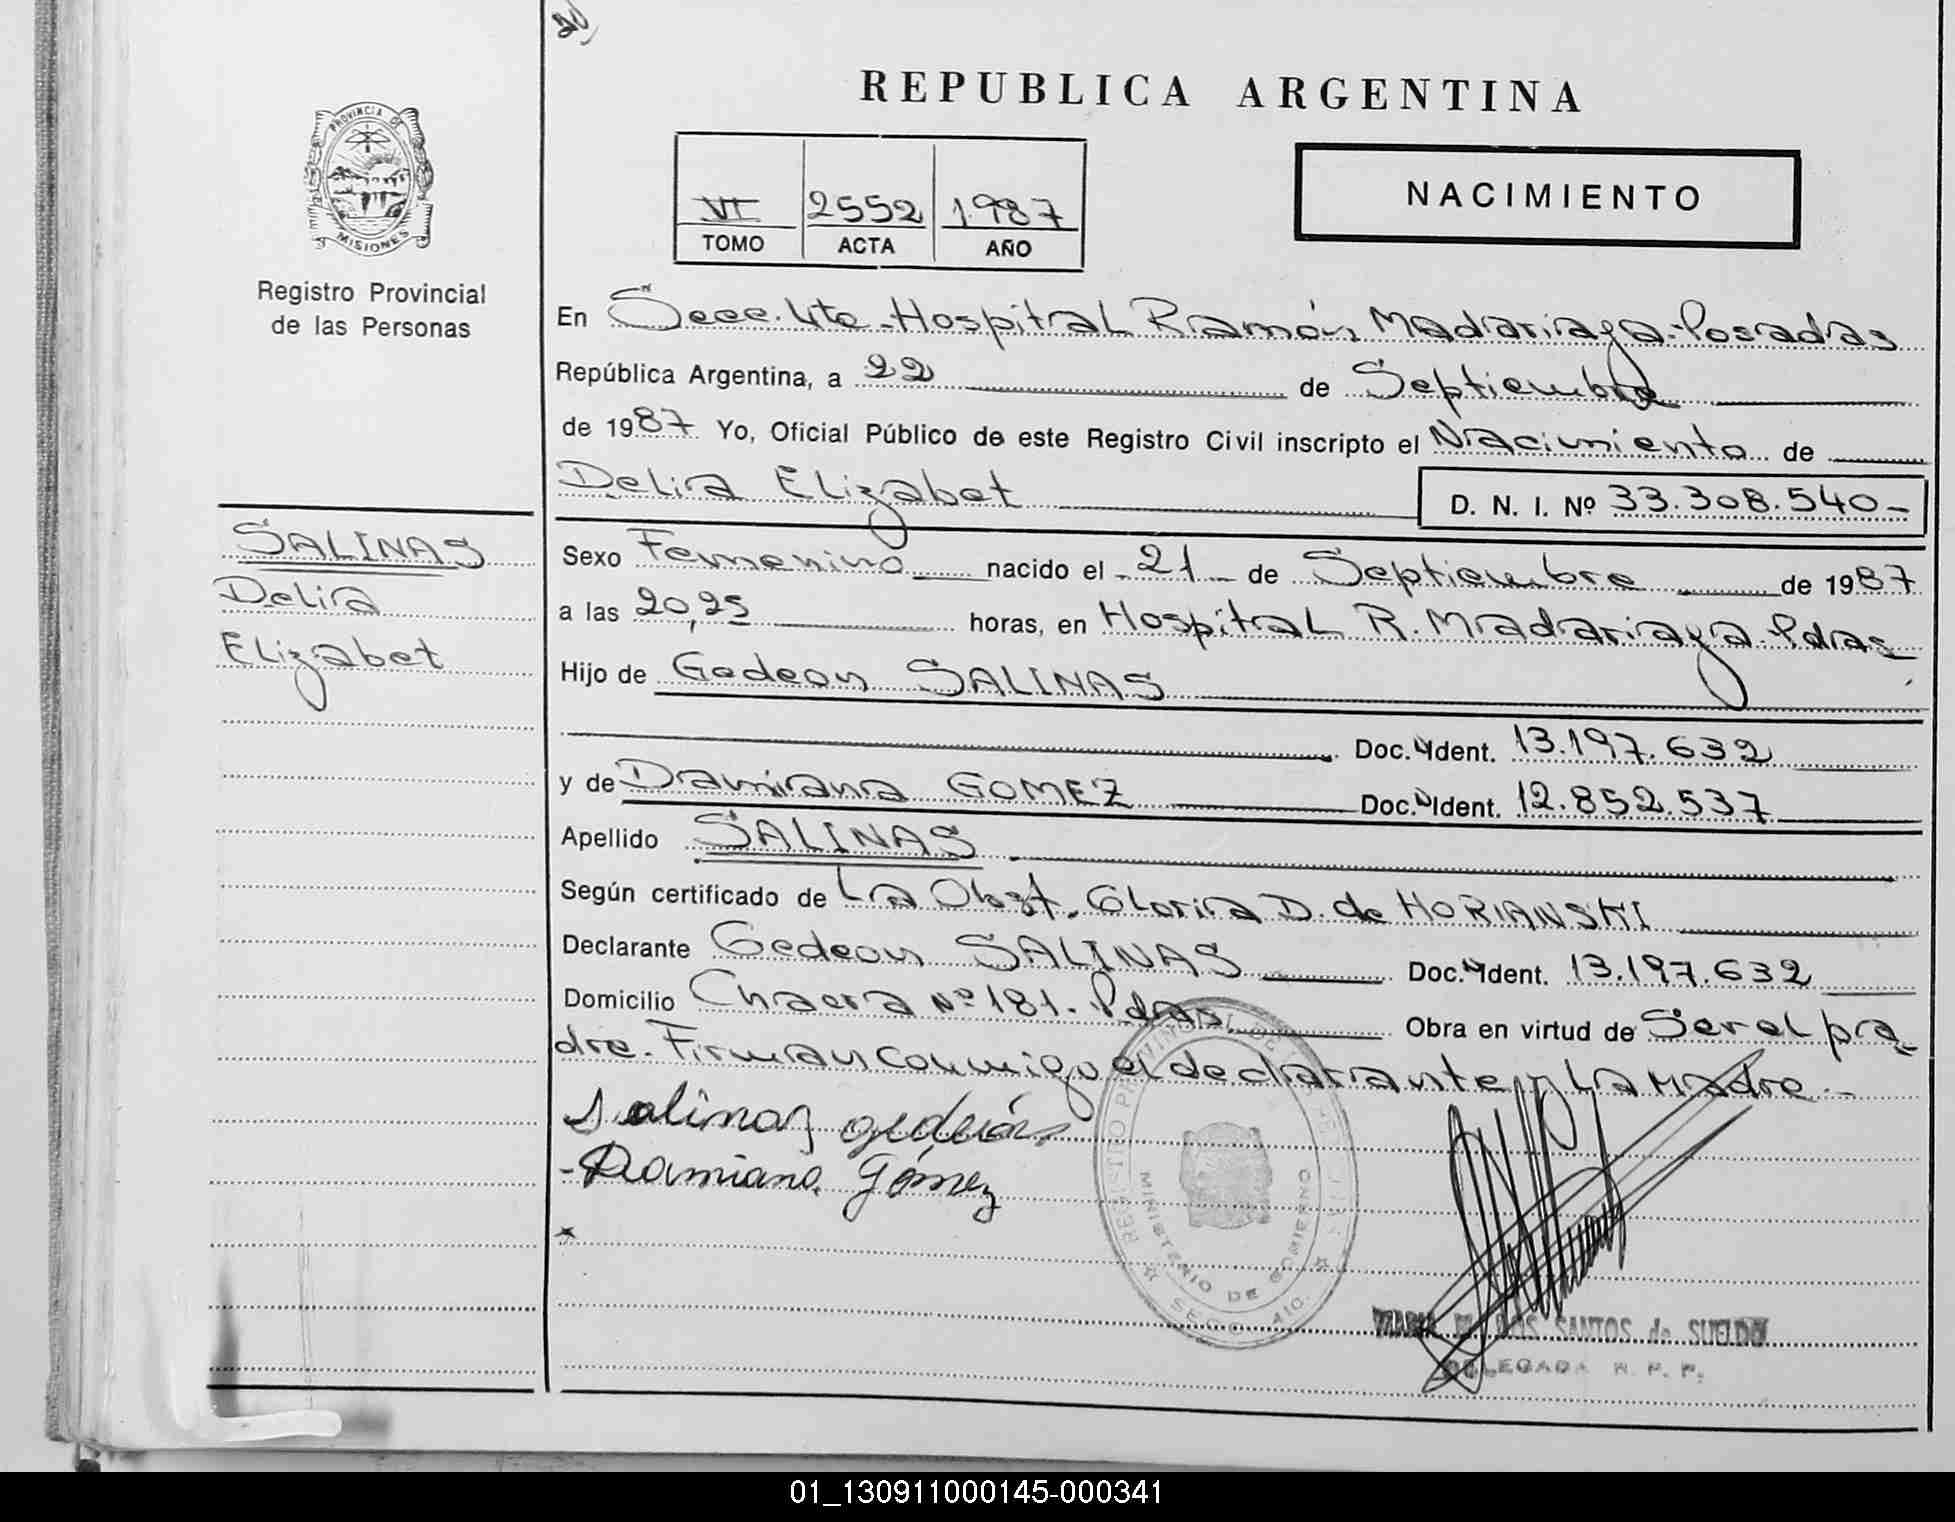 REPUBLICA ARGENTINA
PROVINCIA DE
MISIONES
Registro Provincial
de las Personas
VI 2552 1987
TOMO ACTA AÑO
NACIMIENTO
En Secc. 4ta - Hospital Ramón Madariaga - Posadas
República Argentina, a 22 de Septiembre
de 1987 Yo, Oficial Público de este Registro Civil inscripto el Nacimiento de
Delia Elizabet D. N. I. Nº 33.308.540-
SALINAS
Delia
Elizabet
Sexo Femenino nacido el 21 de Septiembre de 1987
a las 20,25 horas, en Hospital R. Madariaga - Pdas
Hijo de Gedeon SALINAS
Doc. Ident. 13.197.632
y de Damiana GOMEZ Doc. Ident. 12.852.537
Apellido SALINAS
Según certificado de La Obst. Gloria D. de HORIANSKI
Declarante Gedeon SALINAS Doc. Ident. 13.197.632
Domicilio Chacra Nº 181 - Pdas Obra en virtud de Ser el pa-
dre - Firman conmigo el declarante y La Madre -
Salinas gedeón
- Damiana Gómez
REGISTRO PROVINCIAL DE LAS PERSONAS
MINISTERIO DE GOBIERNO
DOS SANTOS de SUELDO
DELEGADA R. P. P.
01_130911000145-000341